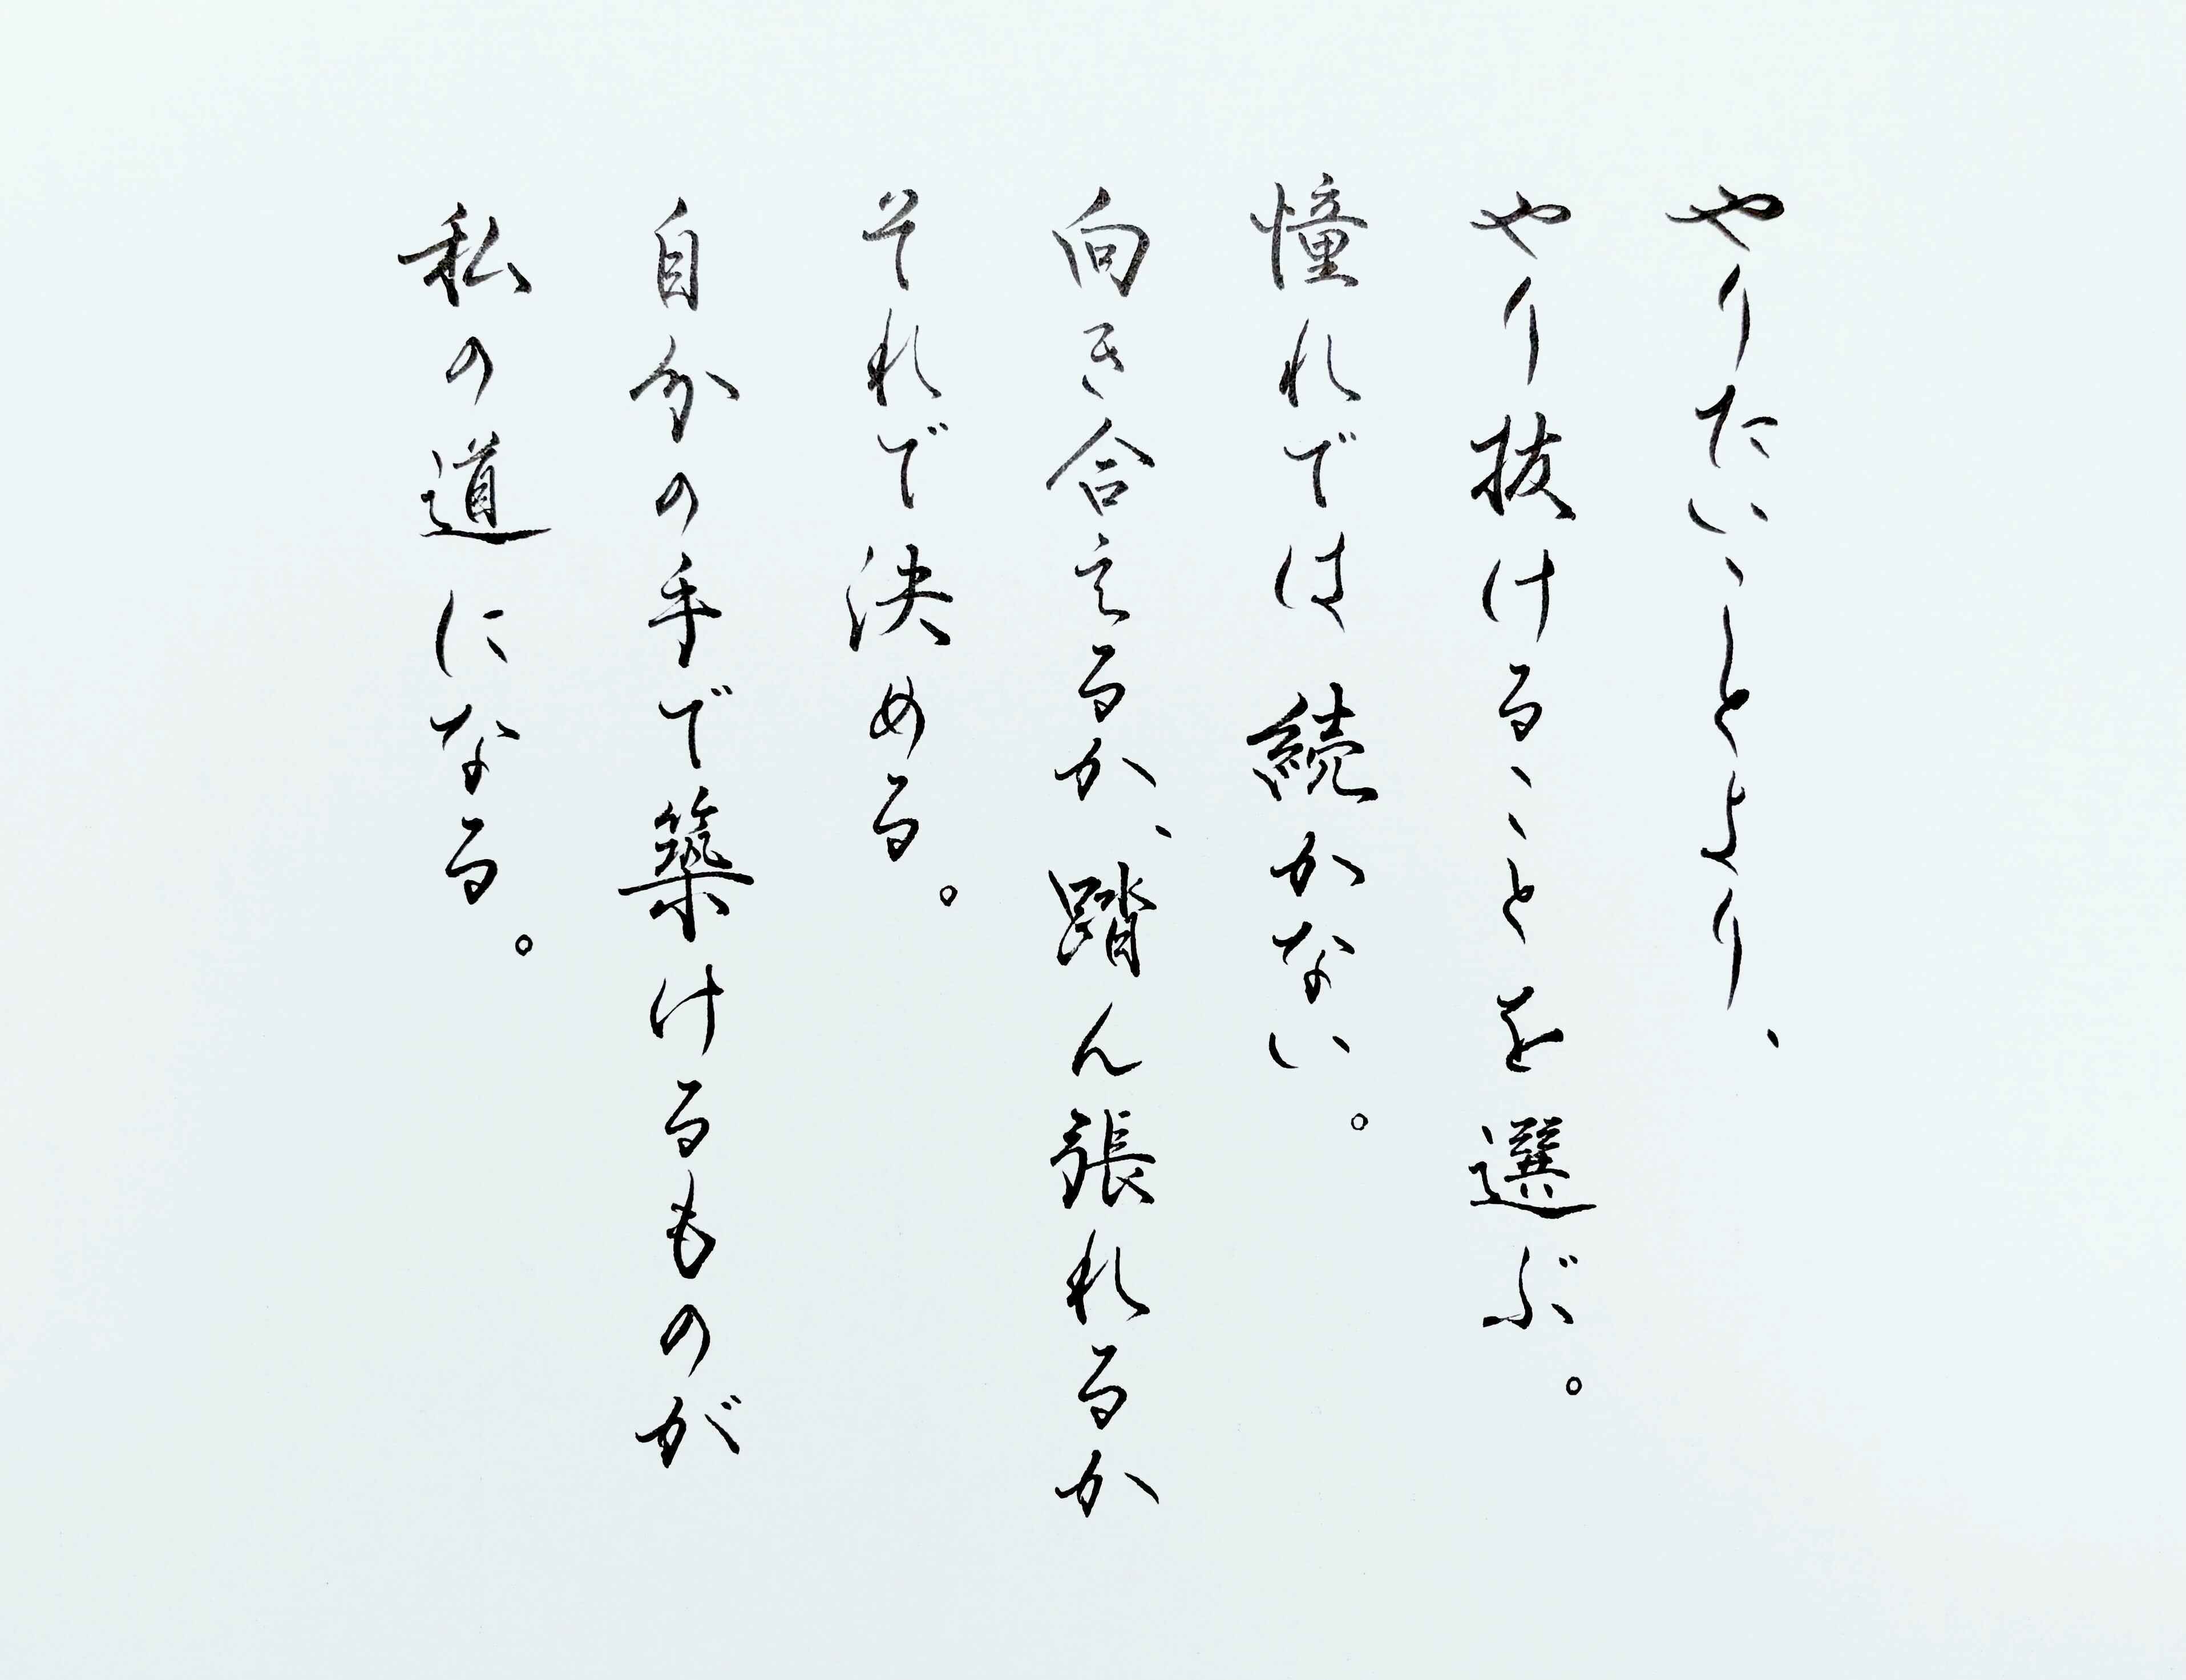 やりたいことより、
やり抜けることを選ぶ。
憧れでは続かない。
向き合えるか、踏ん張れるか
それで決める。
自分の手で築けるものが
私の道になる。